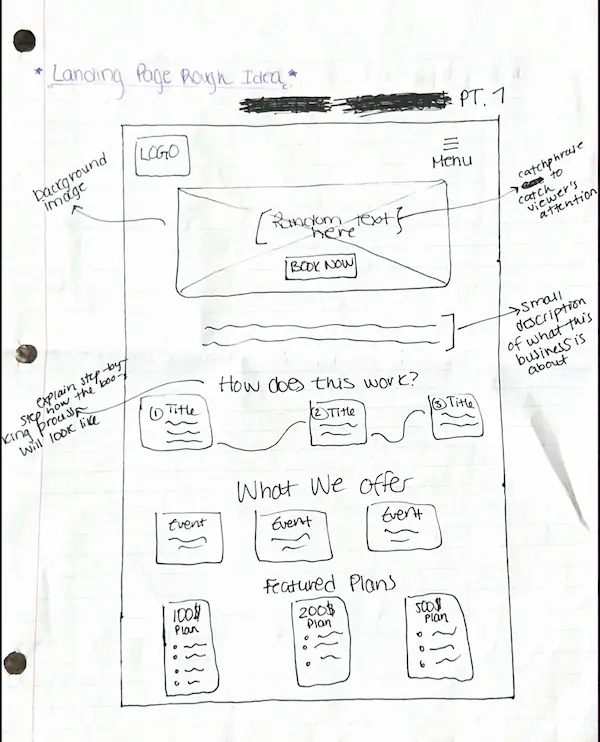 * Landing Page Rough Idea *
PT. 1
LOGO
Menu
background
image
Random text
here
BOOK NOW
catchphrase
to
catch
viewer's
attention
small
description
of what this
business is
about
How does this work?
explain step-by-
step how the boo-
king process
will look like
(1) Title
(2) Title
(3) Title
What We Offer
Event
Event
Event
Featured Plans
100$
Plan
200$
Plan
500$
Plan